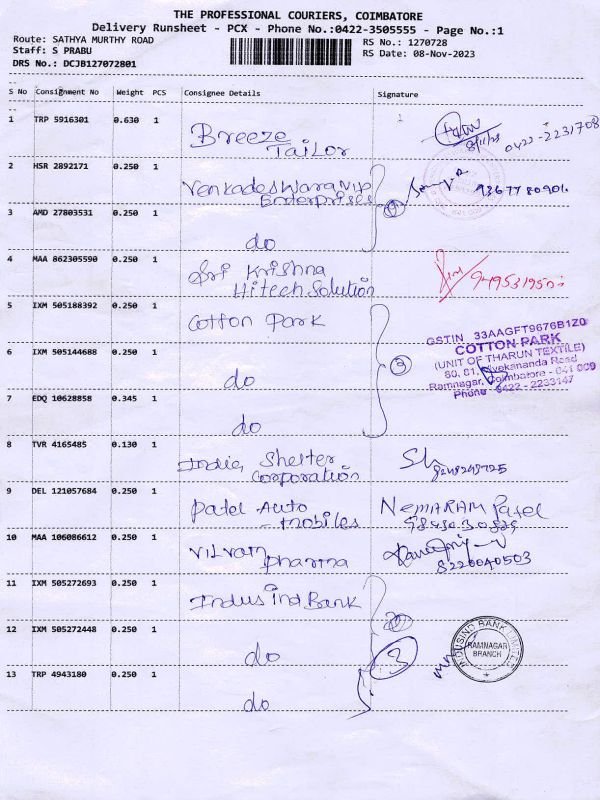 THE PROFESSIONAL COURIERS, COIMBATORE
Delivery Runsheet - PCX - Phone No.:0422-3505555 - Page No.:1
Route: SATHYA MURTHY ROAD
RS No.: 1270728
Staff: S PRABU
RS Date: 08-Nov-2023
DRS No.: DCJB127072801
S No Consignment No Weight PCS Consignee Details Signature
1 TRP 5916301 0.630 1 Breeze
Tailor
8/11/23 0422-2231708
2 HSR 2892171 0.250 1 Venkadeswara
Enterprises
9367780901
3 AMD 27803531 0.250 1
do
4 MAA 862305590 0.250 1 Sri Krishna
Hitech Solution
5 IXM 505188392 0.250 1 Cotton Park
GSTIN 33AAGFT9676B1Z0
COTTON PARK
(UNIT OF THARUN TEXTILE)
80, 81, Vivekananda Road
Ramnagar, Coimbatore - 641 009
Phone 0422 - 2233147
6 IXM 505144688 0.250 1
do
3
7 EDQ 10628858 0.345 1
do
8 TVR 4165485 0.130 1 India Shelter
Corporation
9 DEL 121057684 0.250 1 Patel Auto
- mobiles
NEMARAM Patel
10 MAA 106086612 0.250 1 Vilvam
Pharma
8220040503
11 IXM 505272693 0.250 1 IndusInd Bank
12 IXM 505272448 0.250 1
do
3
INDUSIND BANK LIMITED
RAMNAGAR
BRANCH
13 TRP 4943180 0.250 1
do